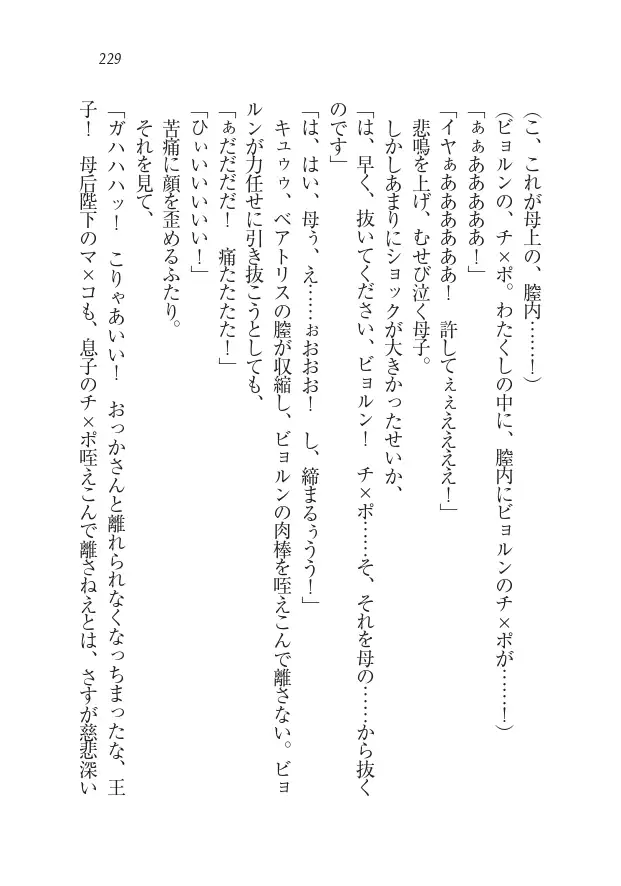 229
(こ、これが母上の、膣内……！)
(ビョルンの、チ×ポ。わたくしの中に、膣内にビョルンのチ×ポが……！)
「ぁぁああああぁ！」
「イヤぁあああああぁ！　許してぇぇえええぇ！」
悲鳴を上げ、むせび泣く母子。
しかしあまりにショックが大きかったせいか、
「は、早く、抜いてください、ビョルン！　チ×ポ……そ、それを母の……から抜く
のです」
「は、はい、母ぅ、え……ぉおおお！　し、締まるぅうう！」
キュゥゥ、ベアトリスの膣が収縮し、ビョルンの肉棒を咥えこんで離さない。ビョ
ルンが力任せに引き抜こうとしても、
「ぁだだだだ！　痛たたたた！」
「ひぃいいいいい！」
苦痛に顔を歪めるふたり。
それを見て、
「ガハハハッ！　こりゃあいい！　おっかさんと離れられなくなっちまったな、王
子！　母后陛下のマ×コも、息子のチ×ポ咥えこんで離さねえとは、さすが慈悲深い